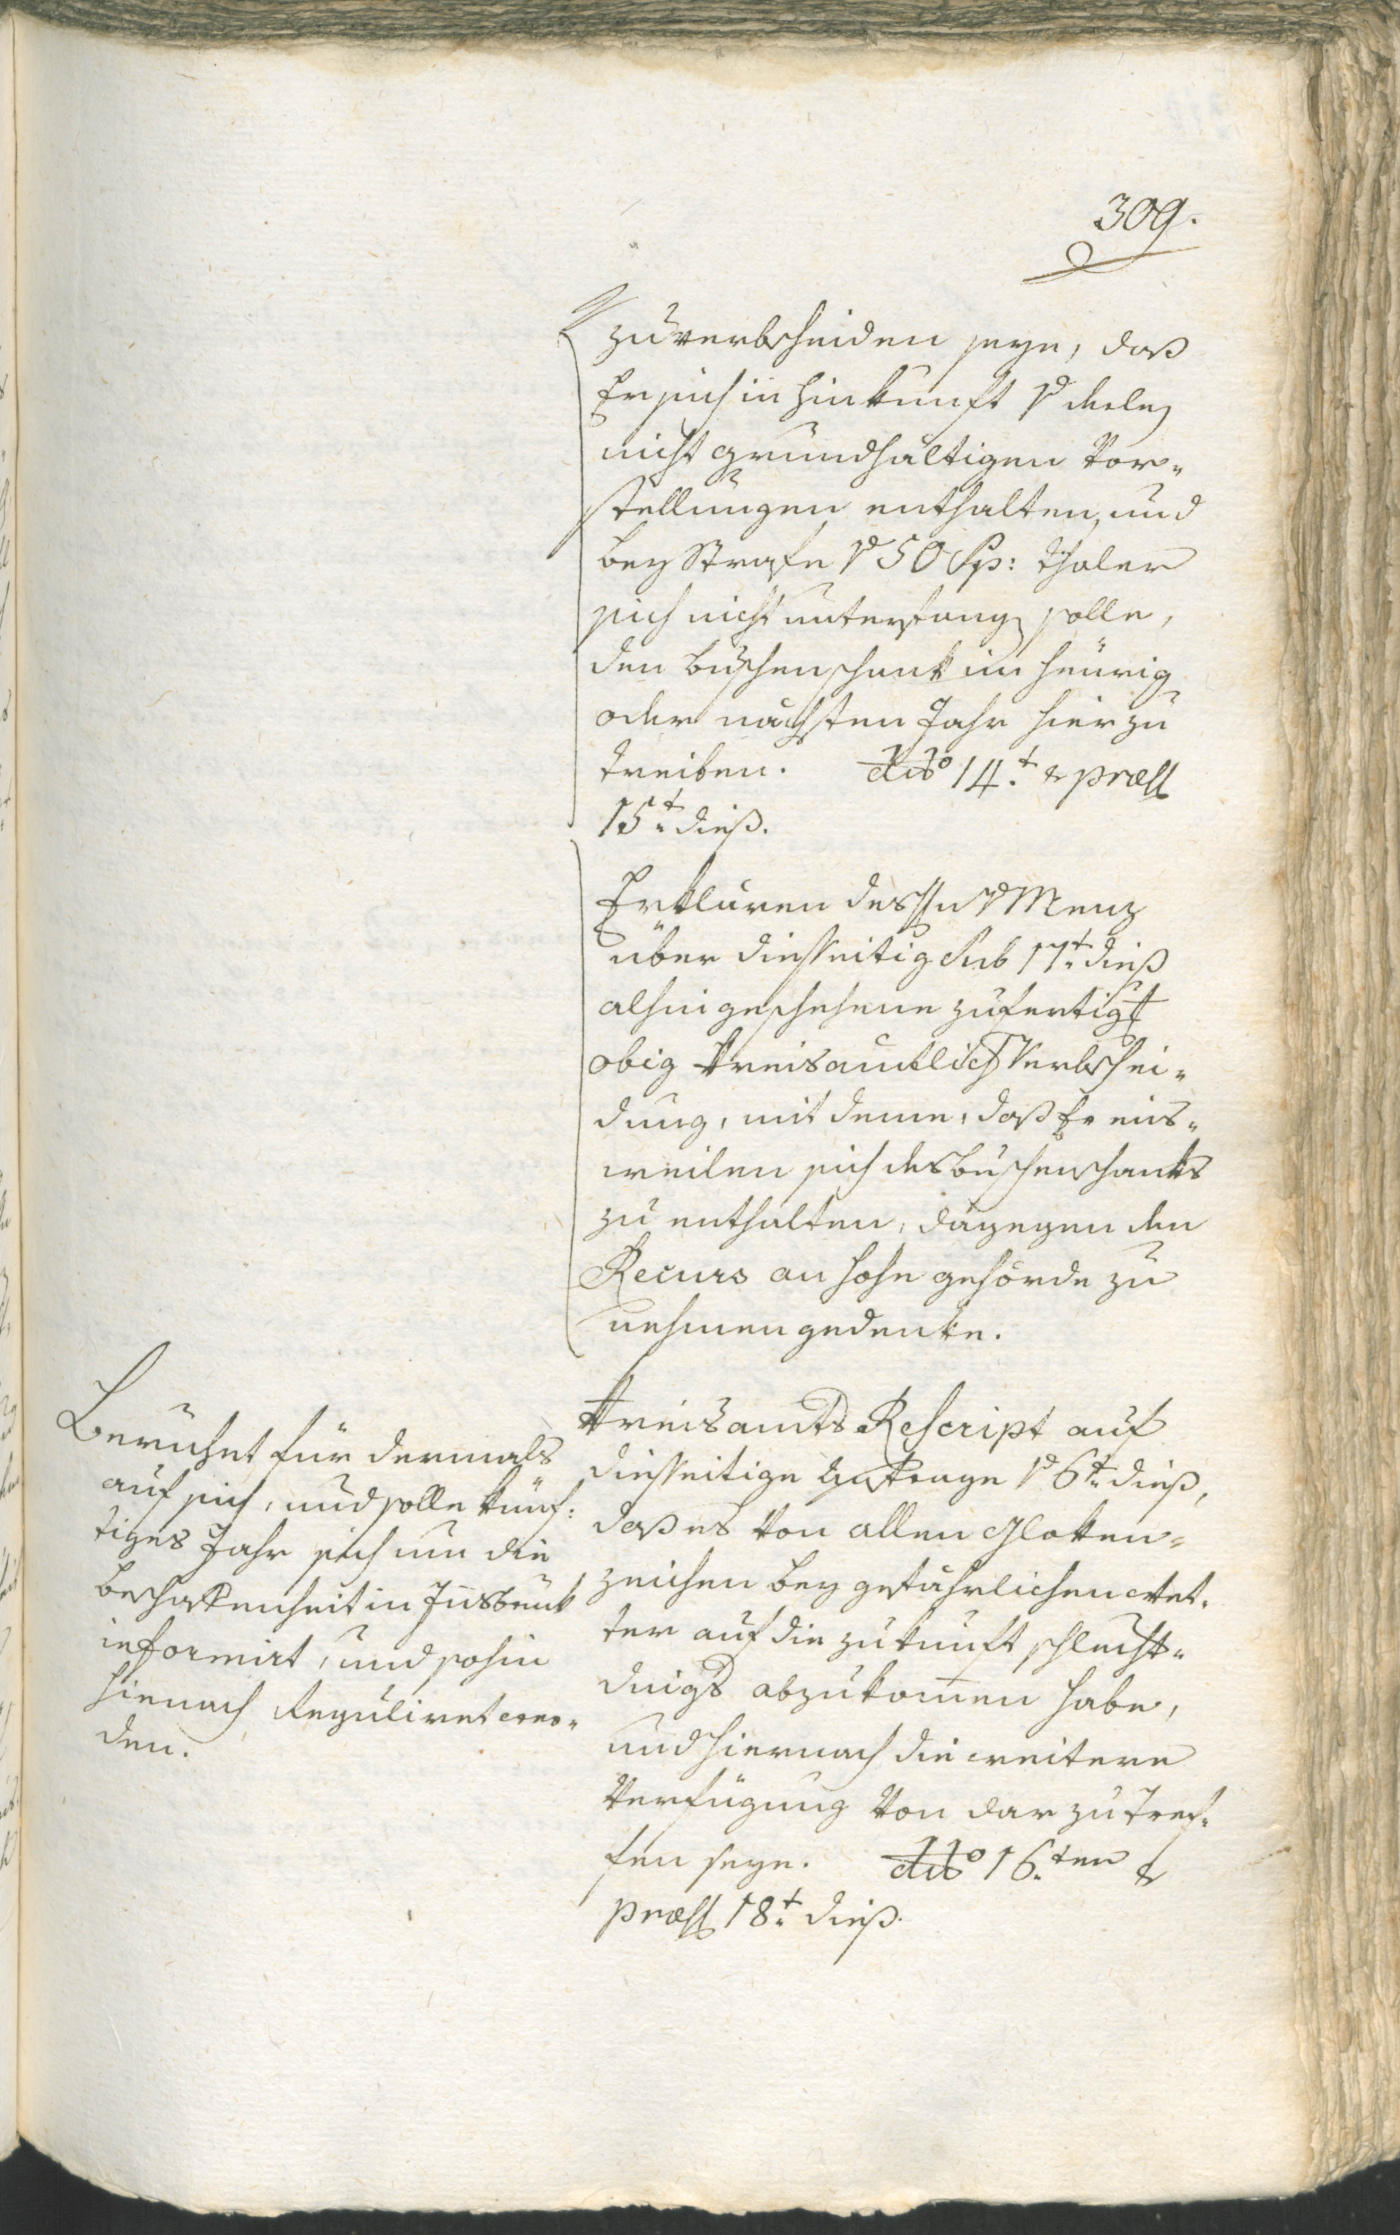 309.
zuverbscheiden seye, daß
Er sich in Hinkunft v derley
nicht grundhältigen Vor-
stellungen enthalten, und
bey Strafe v 50 Sp: Thaler
sich nicht unterfang solle,
den buschenschank im heürig
oder nächsten Jahr hier zu
treiben. ddto 14.t & præss
15.t dieß.
Erklären des Hn v Menz
über diesseitig sub 17.t dieß
alhin geschehene zufertig
obig Kreisamtlich Verbschei-
dung, mit deme, daß Er eins-
weilen sich des buschenschanks
zu enthalten, dagegen den
Recurs an hohe gehörde zu
nehmen gedenke.
Kreisamts Rescript auf
diesseitige Anfrage v 6.t dieß,
daß es von allen Gloken-
zeichen bey gefährlichen Wet-
ter auf die zukunft schlecht-
dings abzukom̅en habe,
und hiernach die weitere
Verfügung von dar zu tref-
fen seye. ddto 16.ten &
præss 18.t dieß.
Beruhet für dermals
auf sich, und solle künf-
tiges Jahr sich um die
beschaffenheit in Insbruk
informirt, und sohin
hienach Reguliret wer-
den.